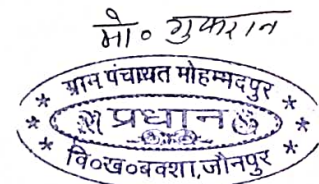 मो० गुफरान
ग्राम पंचायत मोहम्मदपुर
प्रधान
वि०ख०बक्शा, जौनपुर